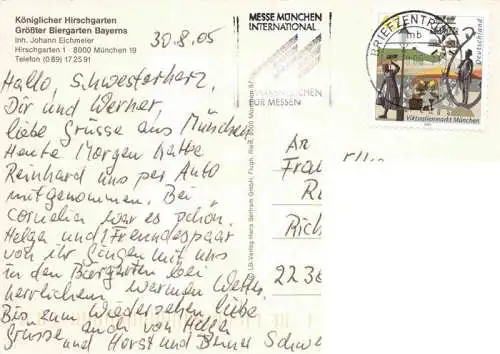 Königlicher Hirschgarten
Größter Biergarten Bayerns
Inh. Johann Eichmeier
Hirschgarten 1 8000 München 19
Telefon (0 89) 17 25 91
30.8.05
Hallo, Schwesterherz,
Dir und Werner,
liebe Grüsse aus München
Heute Morgen hatte
Reinhard uns per Auto
mitgenommen. Bei
Cornelia war es schön.
Helga und 1 Freundespaar
von ihr gingen mit uns
in den Biergarten bei
herrlichem warmen Wetter.
Bis zum Wiedersehen, liebe
Grüsse auch von Helga
und Horst und Deiner Schwe
MESSE MÜNCHEN
INTERNATIONAL
FÜR MESSEN
BRIEFZENTR
mb
Deutschland
Viktualienmarkt München
LB-Verlag Hans Bertram GmbH, Flugh. Riem, 8000 München 87
An
Frau
Re
Rich
223